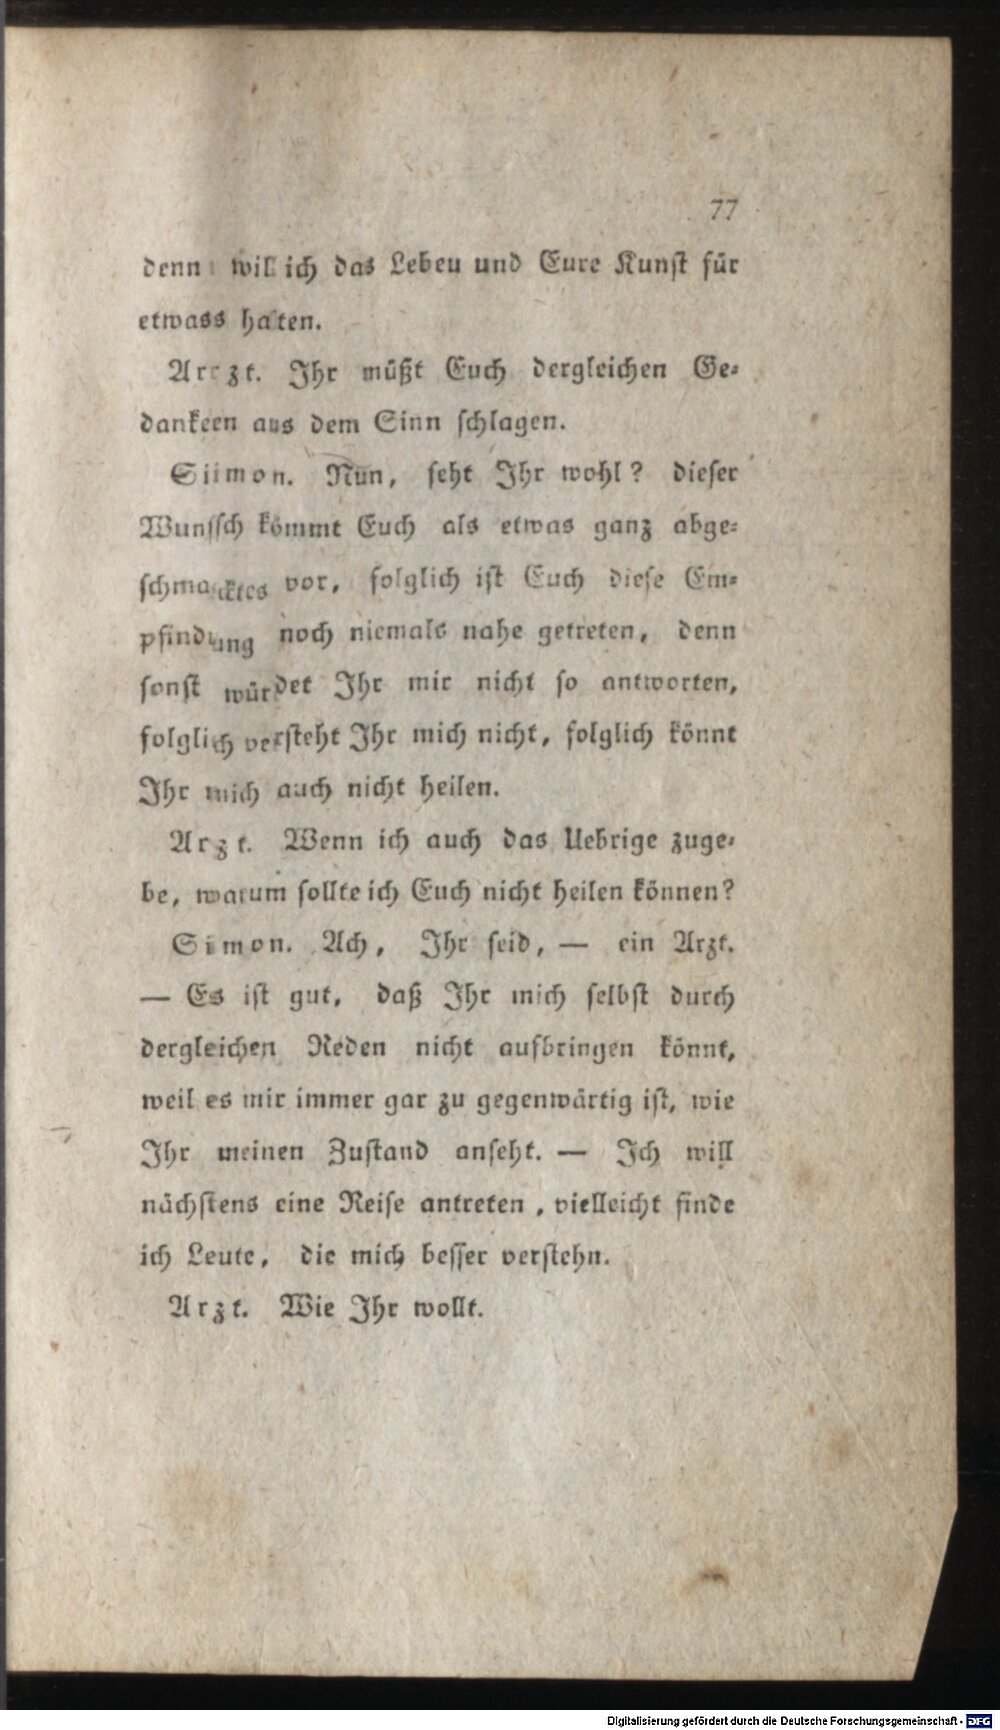 77
denn wil ich das Lebeu und Eure Kunst für
etwass halten.
Arzt. Ihr müßt Euch dergleichen Ge-
dankeen aus dem Sinn schlagen.
Siimon. Nun, seht Ihr wohl? dieser
Wunssch kömmt Euch als etwas ganz abge-
schmacktes vor, folglich ist Euch diese Em-
pfindung noch niemals nahe getreten, denn
sonst würdet Ihr mir nicht so antworten,
folglich versteht Ihr mich nicht, folglich könnt
Ihr mich auch nicht heilen.
Arzt. Wenn ich auch das Uebrige zuge-
be, warum sollte ich Euch nicht heilen können?
Simon. Ach, Ihr seid, — ein Arzt.
— Es ist gut, daß Ihr mich selbst durch
dergleichen Reden nicht aufbringen könnt,
weil es mir immer gar zu gegenwärtig ist, wie
Ihr meinen Zustand anseht. — Ich will
nächstens eine Reise antreten, vielleicht finde
ich Leute, die mich besser verstehn.
Arzt. Wie Ihr wollt.
Digitalisierung gefördert durch die Deutsche Forschungsgemeinschaft - DFG